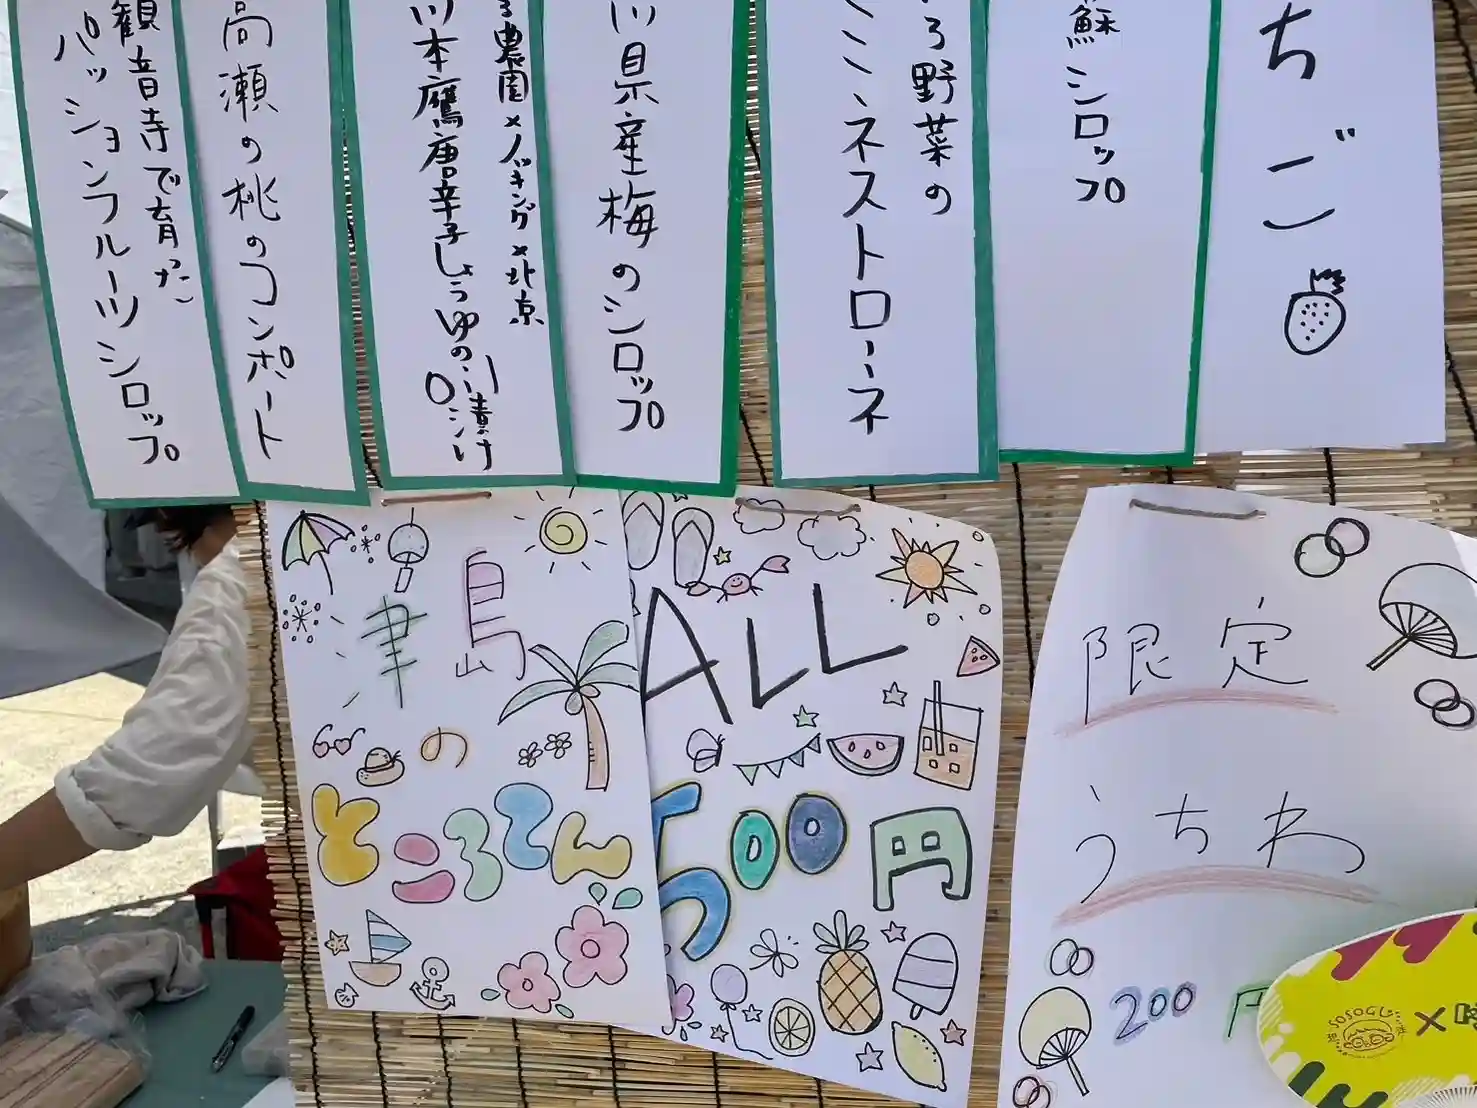 ちご
蘇シロップ
ろ野菜の
ミネストローネ
川県産梅のシロップ
農園×バキング×北京
川本鷹唐辛子しょうゆの
漬け
高瀬の桃のコンポート
観音寺で育った
パッションフルーツシロップ
津島
の
ところてん
ALL
500円
限定
うちわ
200円
SOSOGU
×